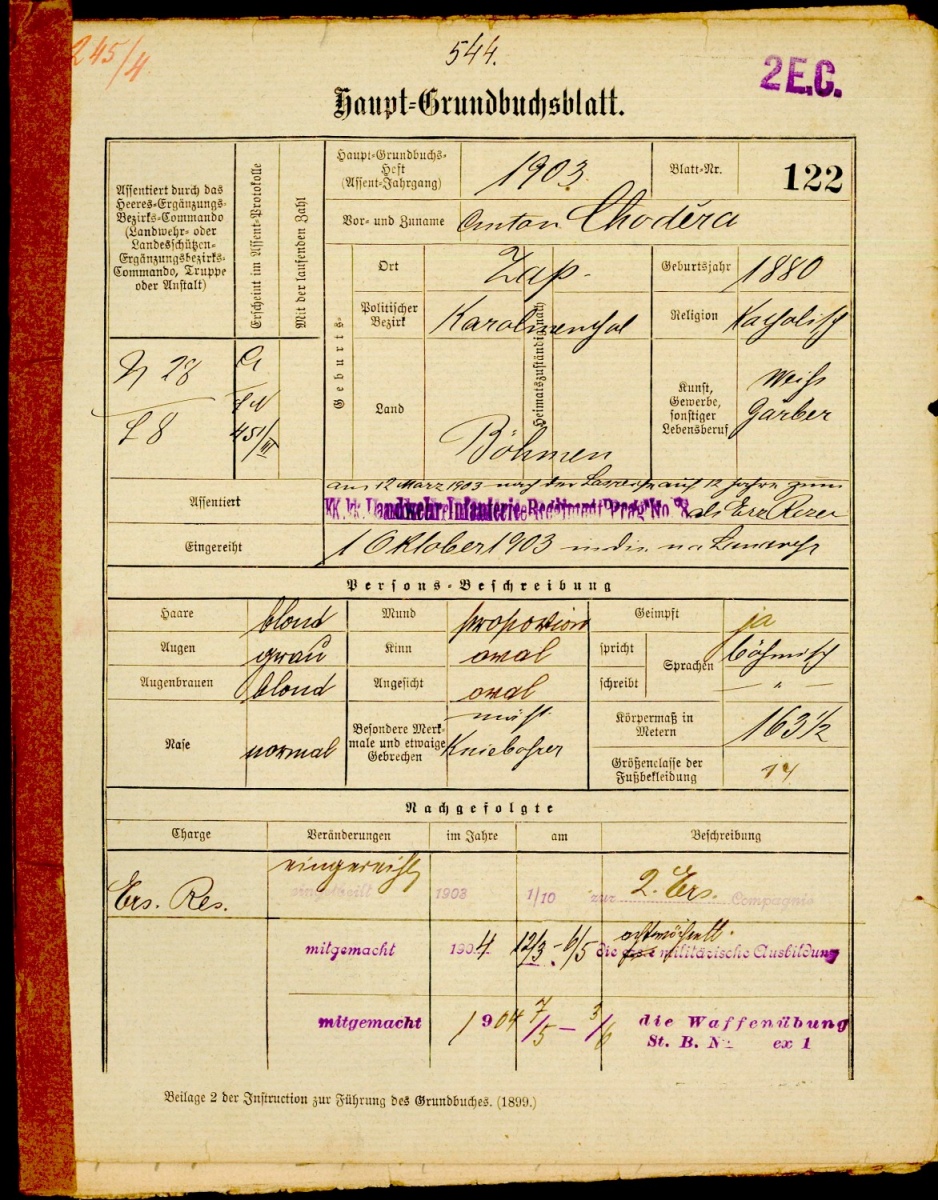 245/4
544.
2 E.C.
Haupt-Grundbuchsblatt.
Assentiert durch das
Heeres-Ergänzungs-
Bezirks-Commando
(Landwehr- oder
Landesschützen-
Ergänzungsbezirks-
Commando, Truppe
oder Anstalt)
Erscheint im Assent-Protokolle
Mit der laufenden Zahl
Haupt-Grundbuchs-
Heft
(Assent-Jahrgang)
1903.
Blatt-Nr.
122
Vor- und Zuname
Anton Choděra
Geburts-
Ort
Zap.
Heimatszuständigkeit
Geburtsjahr
1880
Politischer
Bezirk
Karolinenthal
Religion
Katholisch
Land
Böhmen
Kunst,
Gewerbe,
sonstiger
Lebensberuf
Weiß
Gärber
28
8
451/III
Assentiert
am 12 März 1903 nach der auf 12 Jahre zum
k.k. Landwehr-Infanterie Regiment Prag No. 8 als Ers Reser
Eingereiht
1 Oktober 1903 in die
Persons-Beschreibung
Haare
blond
Mund
proportion
Geimpft
ja
Augen
grau
Kinn
oval
spricht
Sprachen
böhmisch
Augenbrauen
blond
Angesicht
oval
schreibt
— " —
Nase
normal
Besondere Merk-
male und etwaige
Gebrechen
mäß.
Kniebohrer
Körpermaß in
Metern
163 1/2
Größenclasse der
Fußbekleidung
14
Nachgefolgte
Charge
Veränderungen
im Jahre
am
Beschreibung
Ers. Res.
eingereiht
eingetheilt 1903 1/10 zur 2. Ers. Compagnie
mitgemacht 1904 12/3 - 6/5 die achtwöchentl. militärische Ausbildung
mitgemacht 1904 7/5 — 3/6 die Waffenübung
St. B. No ex 1
Beilage 2 der Instruction zur Führung des Grundbuches. (1899.)